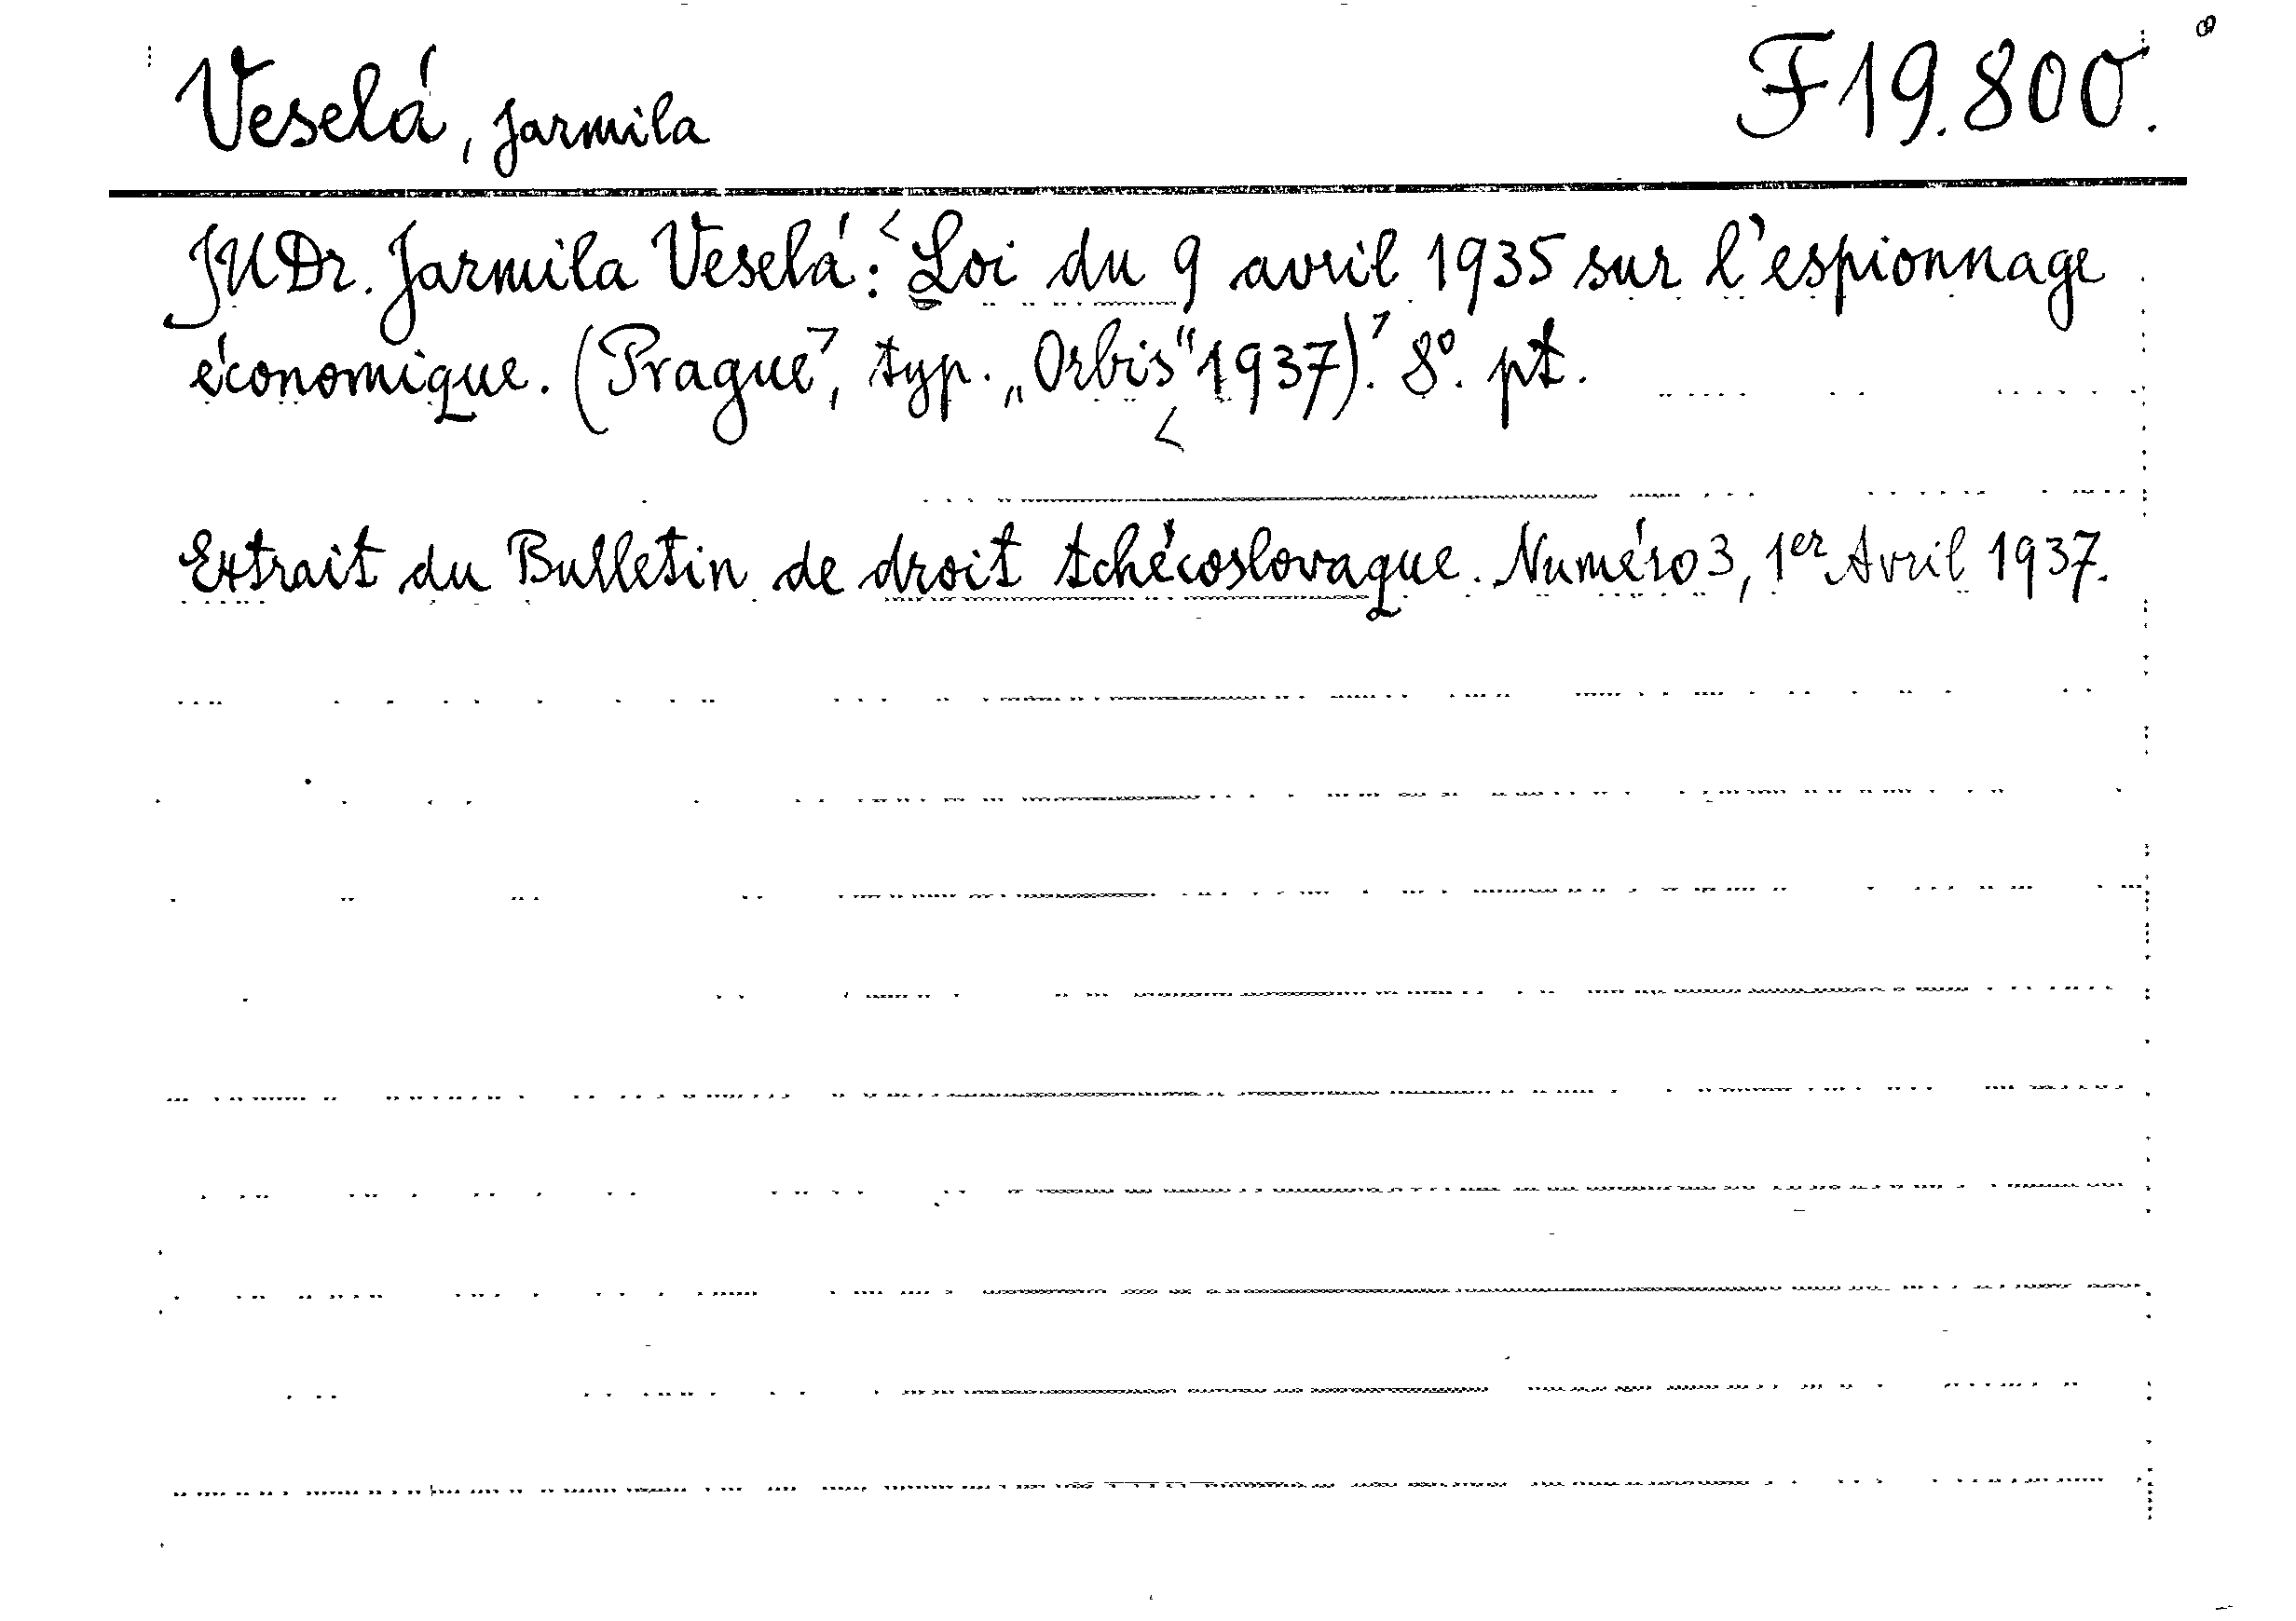 Veselá, Jarmila F 19.800.
JUDr. Jarmila Veselá: <Loi du 9 avril 1935 sur l'espionnage
économique. (Prague>, typ. „Orbis“ <1937).> 8º. pt.
Extrait du Bulletin de droit tchécoslovaque. Numéro 3, 1er Avril 1937.